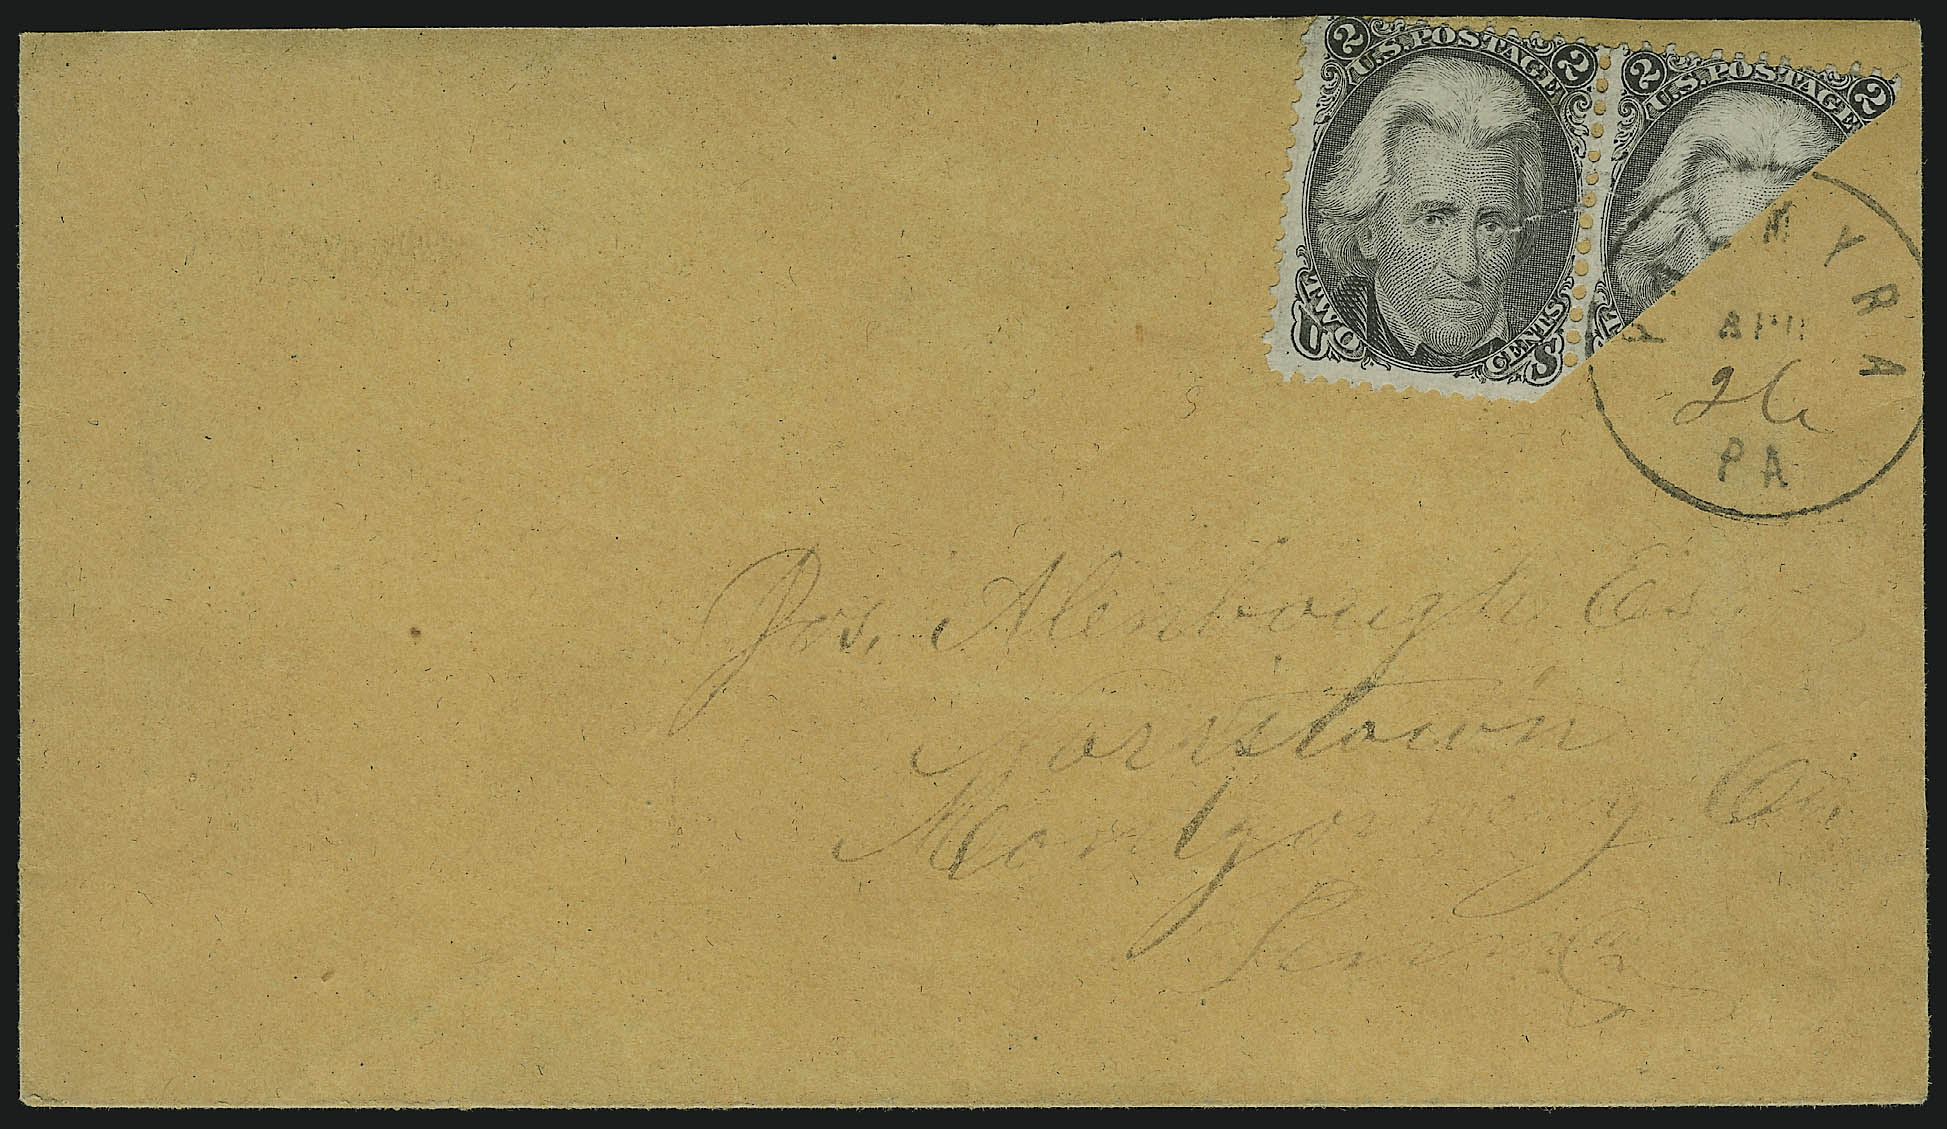 2 U.S. POSTAGE 2
TWO CENTS
U S
2 U.S. POSTAGE 2
PALMYRA
APR
26
PA
Jos. Alenbough Esq
Norristown
Montgomery Co.
Penna